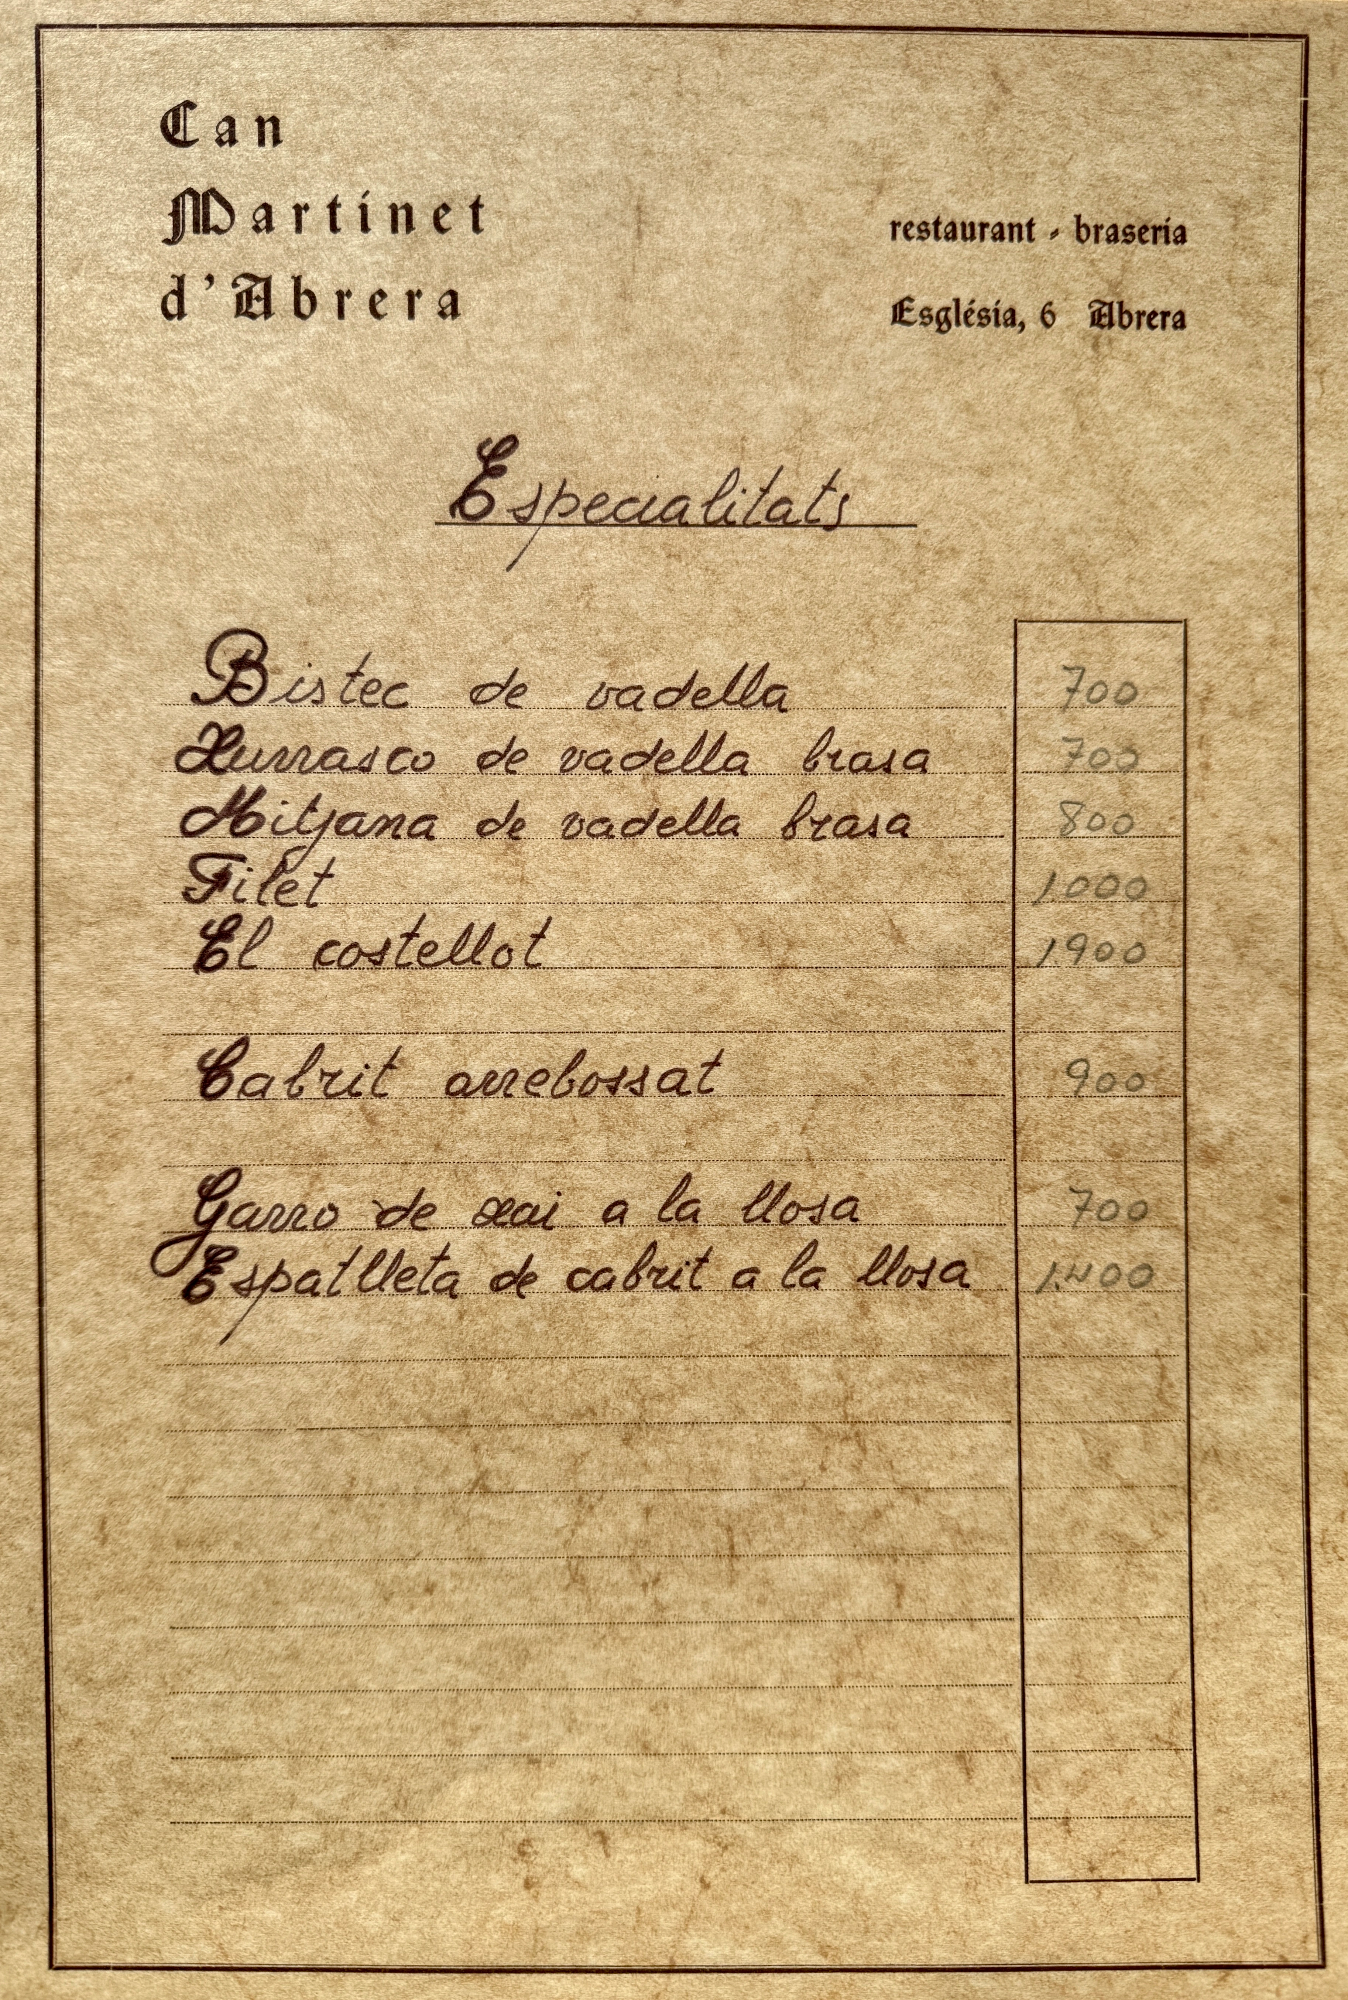 Can
Martinet
d'Abrera
restaurant - braseria
Església, 6 Abrera
Especialitats
Bistec de vadella 700
Xurrasco de vadella brasa 700
Mitjana de vadella brasa 800
Filet 1000
El costellot 1900
Cabrit arrebossat 900
Garro de xai a la llosa 700
Espatlleta de cabrit a la llosa 1.400